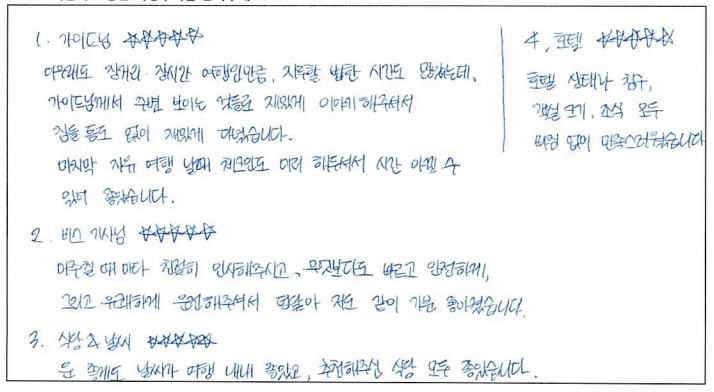 1. 가이드님 ☆☆☆☆☆
아무래도 장거리·장시간 여행인만큼, 지루할 법한 시간도 많았는데,
가이드님께서 주변 보이는 것들로 재밌게 이야기해주셔서
잠들 틈도 없이 재밌게 다녔습니다.
마지막 자유 여행 날때 체크인도 미리 해두셔서 시간 아낄 수
있어 좋았습니다.
2. 버스 기사님 ☆☆☆☆☆
마주칠 때마다 친절히 인사해주시고, 무엇보다도 빠르고 안전하게,
그리고 유쾌하게 운전해주셔서 덩달아 저도 같이 기분 좋아졌습니다.
3. 식당 & 날씨 ☆☆☆☆☆
운 좋게도 날씨가 여행 내내 좋았고, 추천해주신 식당 모두 좋았습니다.
4. 호텔 ☆☆☆☆☆
호텔 상태나 침구,
객실 크기, 조식 모두
빠짐 없이 만족스러웠습니다